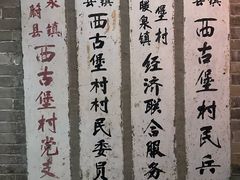 蔚县
泉镇
西古堡村党支
西古堡村村民委员
暖泉镇
堡村
经济联合服务
县
镇
西古堡村民兵